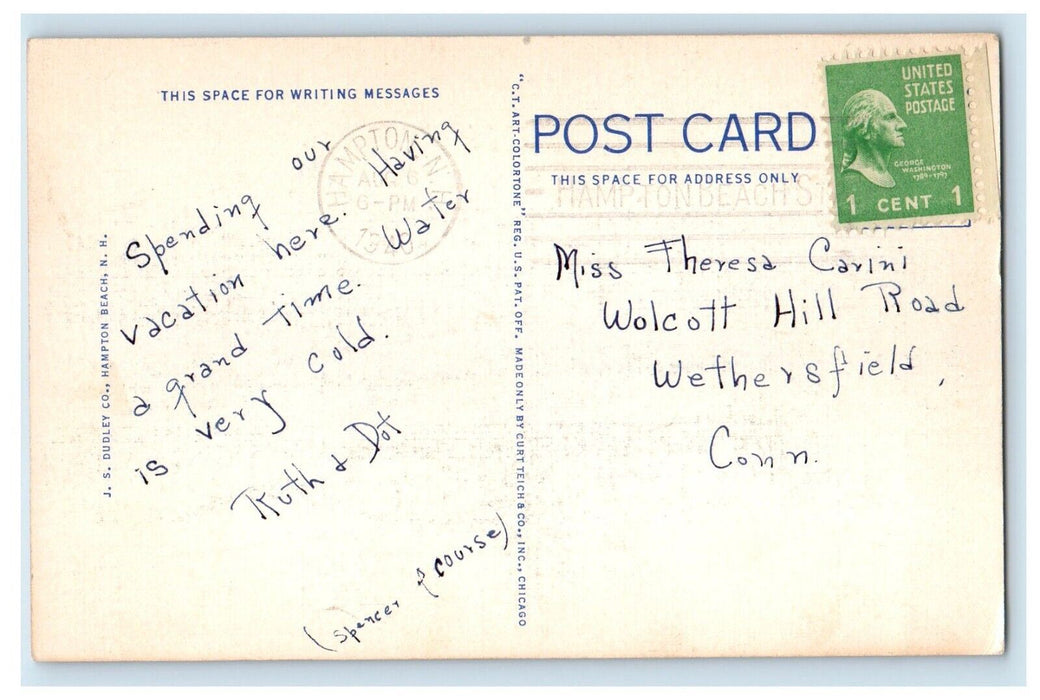 THIS SPACE FOR WRITING MESSAGES
Spending our
vacation here. Having
a grand time. Water
is very cold.
Ruth & Dot
(Spencer of course)
J. S. DUDLEY CO., HAMPTON BEACH, N. H.
"C.T. ART-COLORTONE" REG. U.S. PAT. OFF. MADE ONLY BY CURT TEICH & CO., INC., CHICAGO
HAMPTON N.H.
6
6-PM
POST CARD
THIS SPACE FOR ADDRESS ONLY
HAMPTON BEACH
UNITED
STATES
POSTAGE
GEORGE
WASHINGTON
1789-1797
1 CENT 1
Miss Theresa Carini
Wolcott Hill Road
Wethersfield,
Conn.